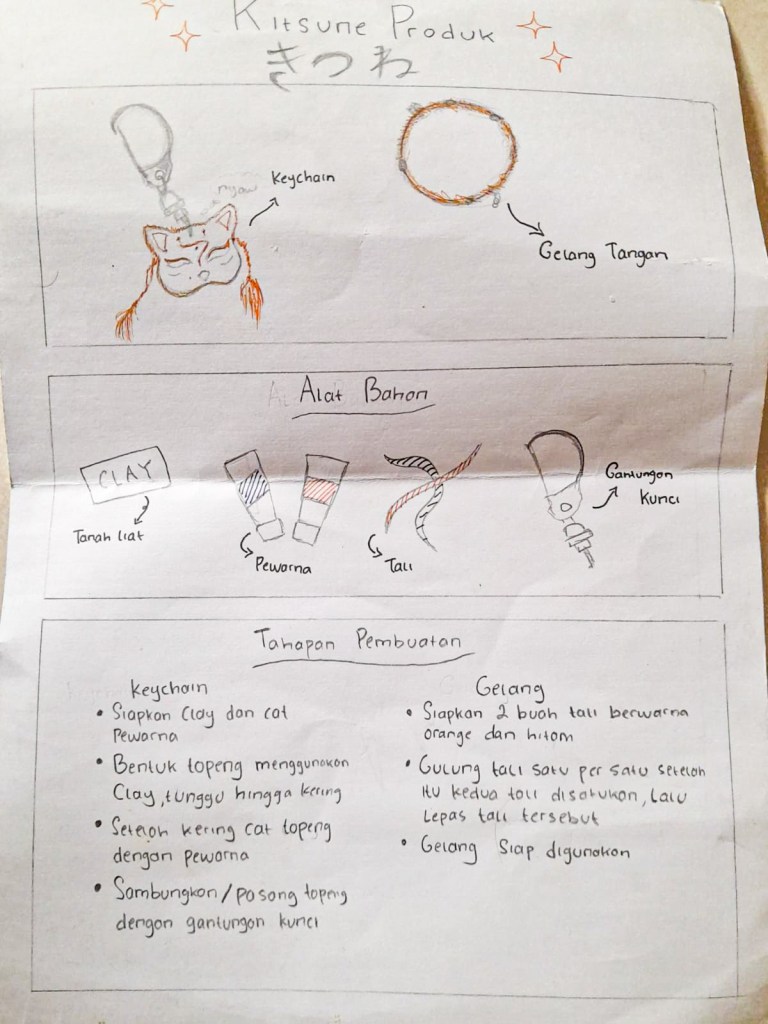 Kitsune Produk
きつね
ngaw
Keychain
Gelang Tangan
Alat Bahan
CLAY
Tanah liat
Pewarna
Tali
Gantungan
Kunci
Tahapan Pembuatan
Keychain
• Siapkan Clay dan cat
Pewarna
• Bentuk topeng menggunakan
Clay, tunggu hingga kering
• Setelah kering cat topeng
dengan pewarna
• Sambungkan/pasang topeng
dengan gantungan kunci
Gelang
• Siapkan 2 buah tali berwarna
orange dan hitam
• Gulung tali satu per satu setelah
itu kedua tali disatukan, lalu
Lepas tali tersebut
• Gelang Siap digunakan